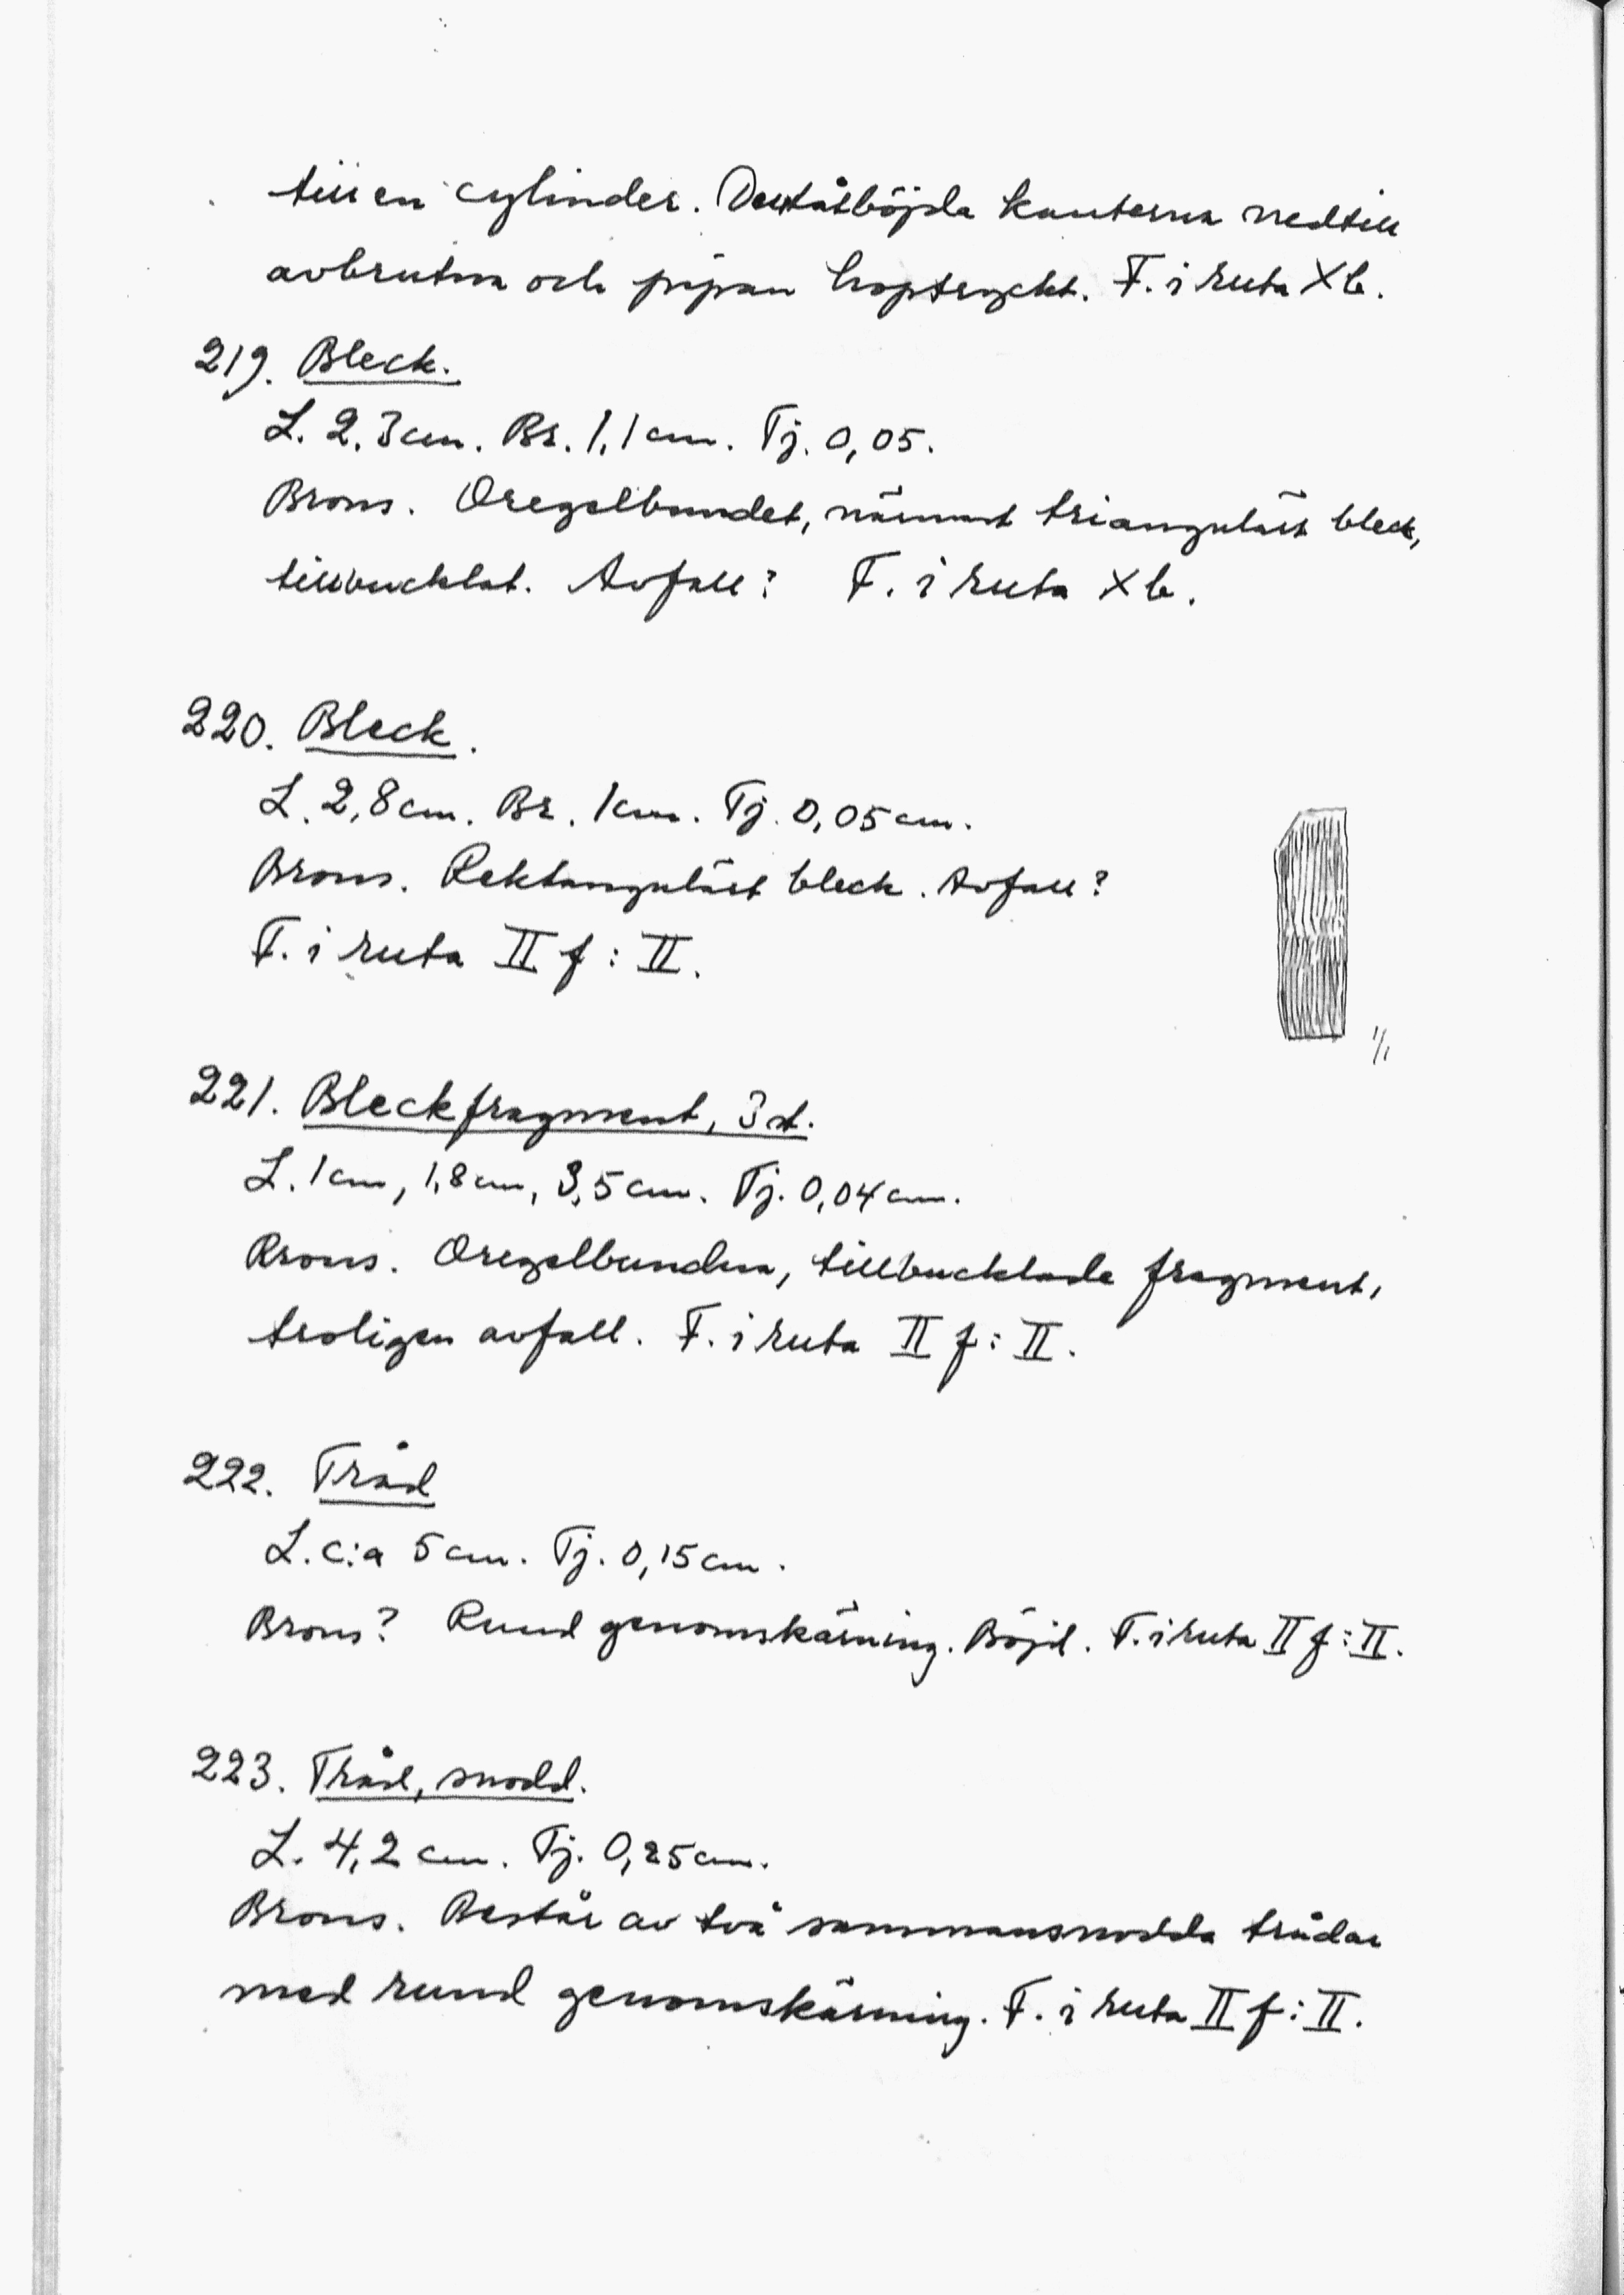 till en cylinder. De utåtböjda kanterna nedtill
avbrutna och pipan hoptryckt. F. i ruta X b.
219. Bleck.
L. 2,3 cm. Br. 1,1 cm. Tj. 0,05.
Brons. Oregelbundet, närmast triangulärt bleck,
tillbucklat. Avfall? F. i ruta X b.
220. Bleck.
L. 2,8 cm. Br. 1 cm. Tj. 0,05 cm.
Brons. Rektangulärt bleck. Avfall?
F. i ruta II f : II.
1/1
221. Bleckfragment, 3 st.
L. 1 cm, 1,8 cm, 3,5 cm. Tj. 0,04 cm.
Brons. Oregelbundna, tillbucklade fragment,
troligen avfall. F. i ruta II f : II.
222. Tråd
L. c:a 5 cm. Tj. 0,15 cm.
Brons? Rund genomskärning. Böjd. F. i ruta II f : II.
223. Tråd, snodd.
L. 4,2 cm. Tj. 0,25 cm.
Brons. Består av två sammansnodda trådar
med rund genomskärning. F. i ruta II f : II.